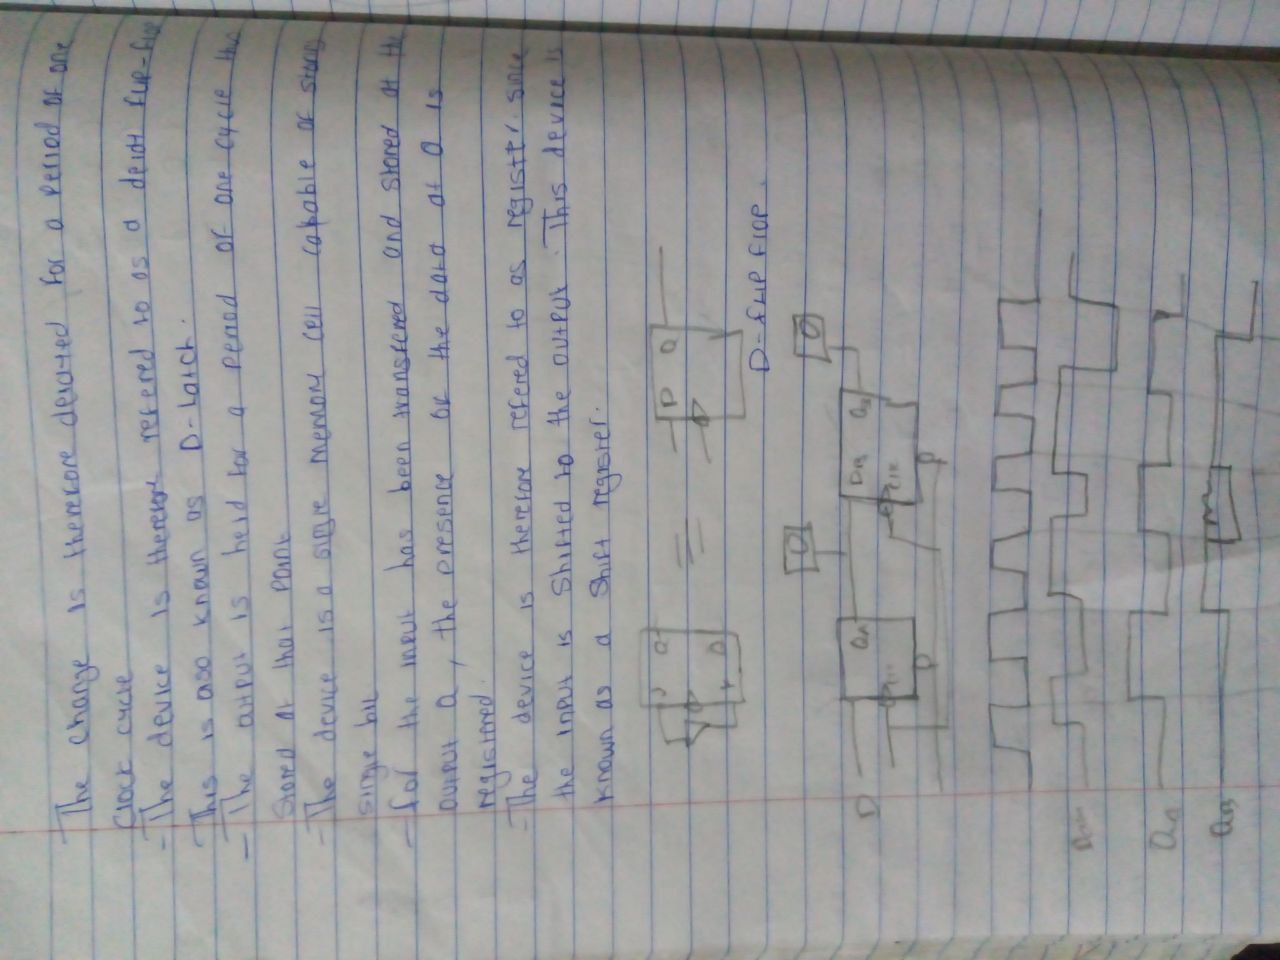 The change is therefore delayed for a period of one
Clock cycle
- The device is therefore refered to as a delay flip-flop
This is also known as D-Latch.
- The output is held for a period of one cycle thus
Stored at that point
- The device is a single memory cell capable of storing
single bit
- for the input has been transfered and stored at the
output Q, the presence of the data at Q is
registered.
- The device is therefore refered to as register. since
the input is Shifted to the output. This device is
known as a Shift register.
J Q
D Q
D-flip flop.
D QA
DB QB
clk
P P
QA
QB